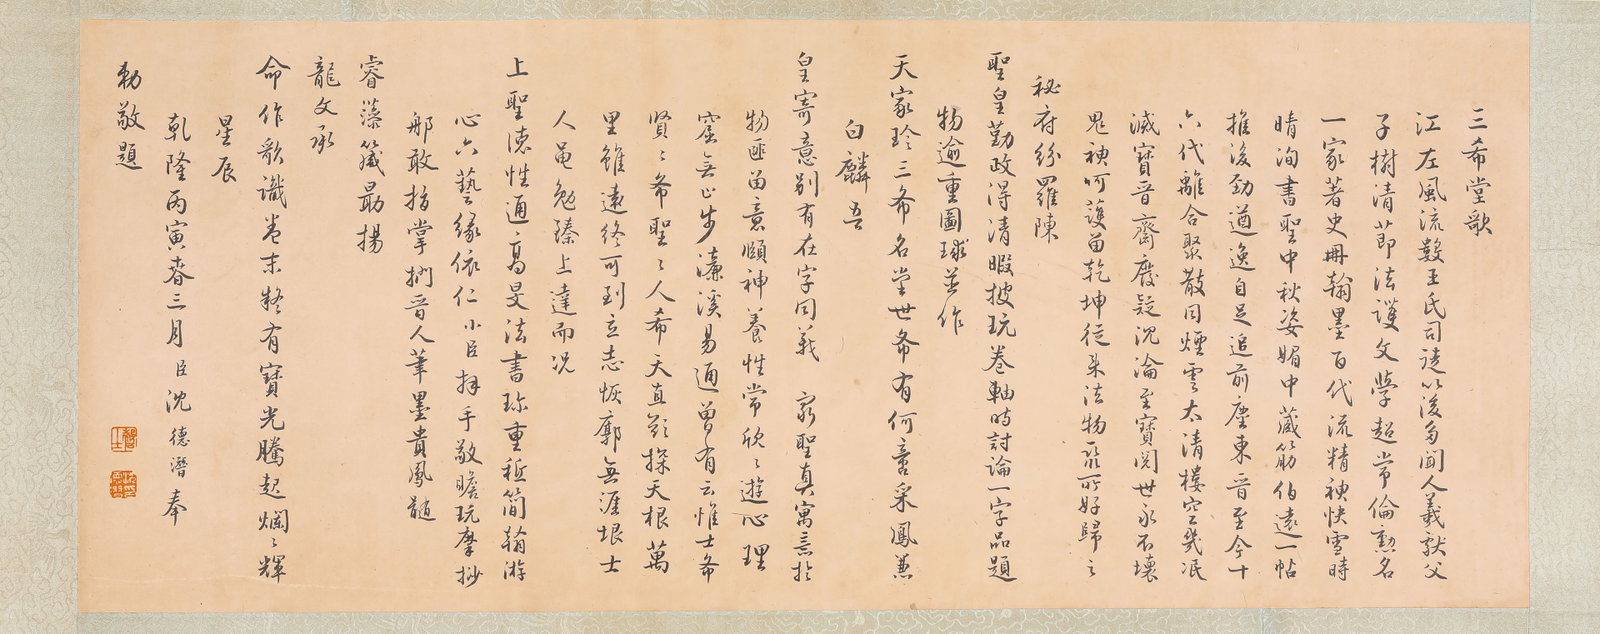 三希堂歌
江左風流數王氏司徒以後多聞人羲獻父
子樹清節法護文學超常倫勲名
一家著史冊翰墨百代流精神快雪時
晴洵書聖中秋姿媚中藏筋伯遠一帖
推後勁遒逸自足追前塵東晉至今十
六代離合聚散同煙雲太清樓空幾泯
滅寶晉齋廢疑沉淪至寶閱世永不壞
鬼神呵護留乾坤從來法物聚所好歸之
秘府紛羅陳
聖皇勤政得清暇披玩卷軸時討論一字品題
物逾重圖球並作
天家珍三希名堂世希有何啻采鳳兼
白麟吾
皇寄意別有在字同義 窮聖真寓言於
物匪留意頤神養性常欣欣遊心理
窟無止步濂溪易通曾有云惟士希
賢賢希聖聖人希天直欲探天根萬
里雖遠終可到立志恢廓無涯垠士
人黽勉臻上達而况
上聖德性通高旻法書珍重秪簡翰游
心六藝緣依仁小臣拜手敬瞻玩摩挲
那敢指掌捫晉人筆墨貴風髓
睿藻箴最揚
龍文承
命作歌識卷末終有寶光騰起爛爛輝
星辰
乾隆丙寅春三月臣沈德潛奉
勅敬題